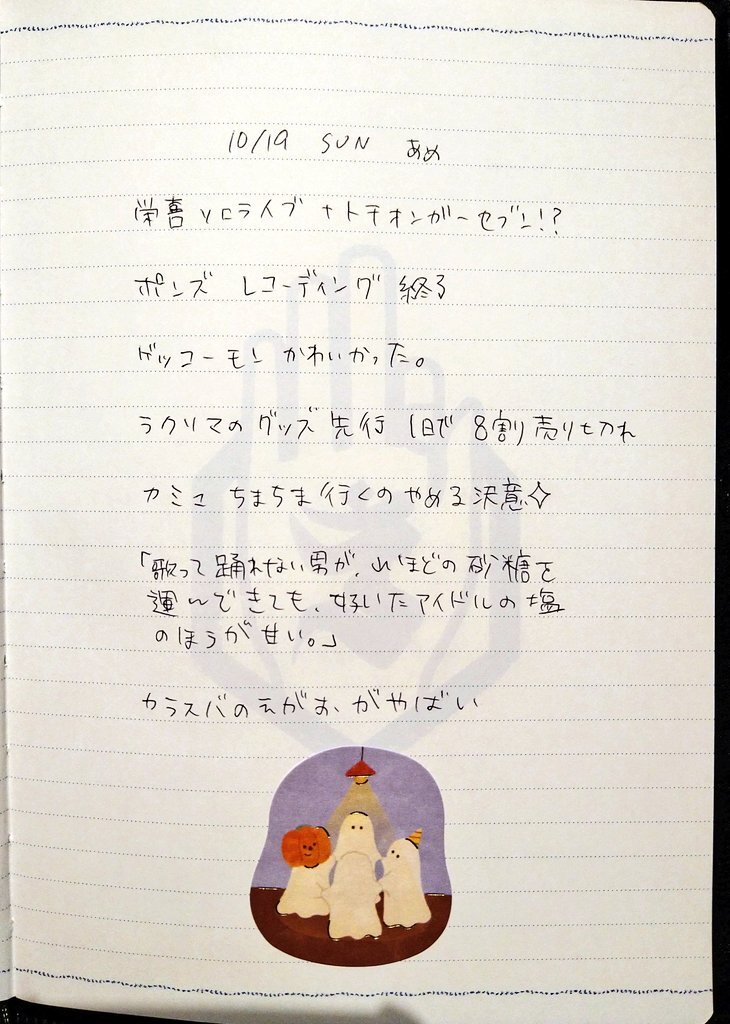 10/19 SUN あめ
栄喜 ソロライブ ナトチオンガーセブン!?
ポンズ レコーディング 終了
ゲッコーモン かわいかった。
ラクリマのグッズ 先行 1日で 8割売り切れ
カミュ ちまちま行くのやめる決意✧
「歌って踊れない男が、山ほどの砂糖を
運んできても、好いたアイドルの塩
のほうが甘い。」
カラスバのえがお、がやばい